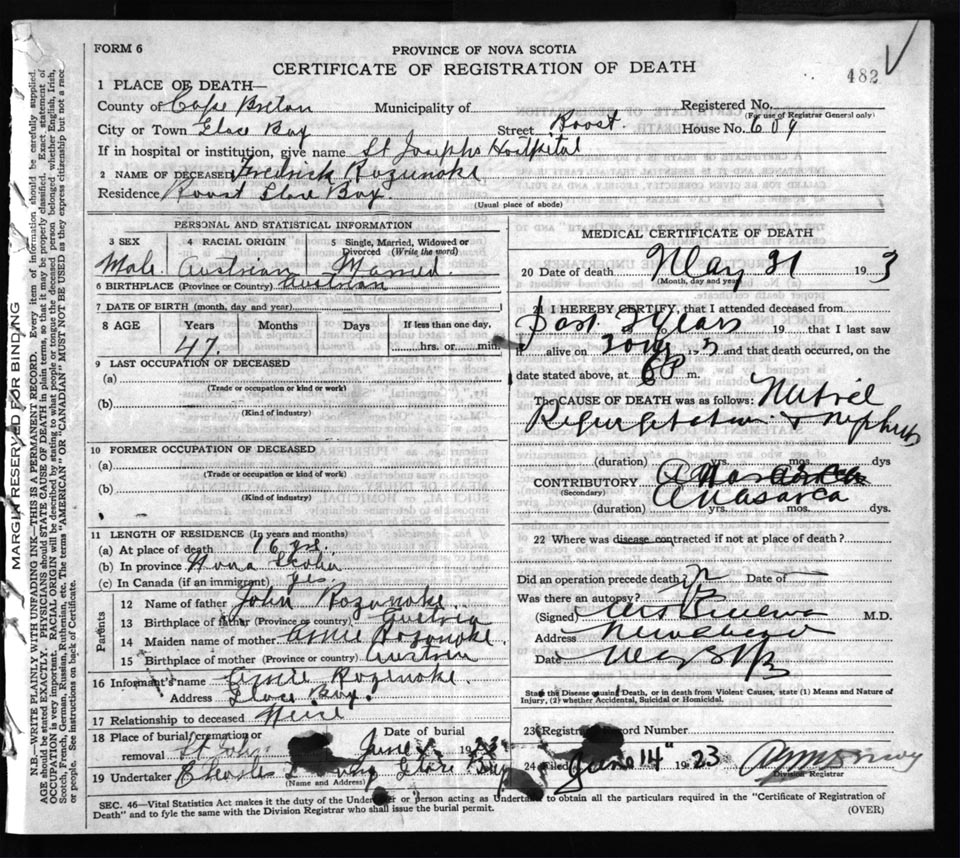 FORM 6
PROVINCE OF NOVA SCOTIA
CERTIFICATE OF REGISTRATION OF DEATH
482
1 PLACE OF DEATH—
County of Cape Breton Municipality of Registered No.
(For use of Registrar General only)
City or Town Glace Bay Street Roost. House No. 609
If in hospital or institution, give name St Josephs Hospital
2 NAME OF DECEASED Fredrick Rozunoke
Residence Roost Glace Bay.
(Usual place of abode)
PERSONAL AND STATISTICAL INFORMATION
3 SEX 4 RACIAL ORIGIN 5 Single, Married, Widowed or Divorced (Write the word)
Male. Austrian Married
6 BIRTHPLACE (Province or Country) Austrian
7 DATE OF BIRTH (month, day and year)
8 AGE Years Months Days If less than one day,
47. hrs. or min.
9 LAST OCCUPATION OF DECEASED
(a)
(Trade or occupation or kind or work)
(b)
(Kind of industry)
10 FORMER OCCUPATION OF DECEASED
(a)
(Trade or occupation or kind of work)
(b)
(Kind of industry)
11 LENGTH OF RESIDENCE (In years and months)
(a) At place of death 16 yrs.
(b) In province Nova Scotia
(c) In Canada (if an immigrant) yes.
Parents
12 Name of father John Rozunoke.
13 Birthplace of father (Province or country) Austria
14 Maiden name of mother Annie Rozonoke.
15 Birthplace of mother (Province or country) Austria
16 Informant's name Rozenoke.
Address Glace Bay.
17 Relationship to deceased
18 Place of burial, cremation or removal St Johns Date of burial June 1923
19 Undertaker Charles Glace Bay
(Name and Address)
MEDICAL CERTIFICATE OF DEATH
20 Date of death May 31 193
(Month, day and year)
21 I HEREBY CERTIFY, that I attended deceased from
Past years to 19 that I last saw
alive on and that death occurred, on the
date stated above, at 6 P m.
The CAUSE OF DEATH was as follows: Mitral
Regurgitation & Nephritis
(duration) yrs. mos. dys
CONTRIBUTORY Anasarca
(Secondary)
(duration) yrs. mos. dys.
22 Where was disease contracted if not at place of death?
Did an operation precede death? Date of
Was there an autopsy?
(Signed) M.D.
Address
Date
State the Disease causing Death, or in death from Violent Causes, state (1) Means and Nature of
Injury, (2) whether Accidental, Suicidal or Homicidal.
23 Registrar Record Number
24 Filed June 14" 1923
Division Registrar
SEC. 46—Vital Statistics Act makes it the duty of the Undertaker or person acting as Undertaker to obtain all the particulars required in the "Certificate of Registration of
Death" and to fyle the same with the Division Registrar who shall issue the burial permit. (OVER)
MARGIN RESERVED FOR BINDING
N.B.—WRITE PLAINLY WITH UNFADING INK—THIS IS A PERMANENT RECORD. Every item of information should be carefully supplied.
AGE should be stated EXACTLY. PHYSICIANS should STATE CAUSE OF DEATH in plain terms, so that it may be properly classified. Exact statement of
OCCUPATION is very important. RACIAL ORIGIN will be described by stating to what people or tongue the deceased person belonged whether English, Irish,
Scotch, French, German, Russian, Ruthenian, etc. The terms "AMERICAN" OR "CANADIAN" MUST NOT BE USED as they express citizenship but not a race
or people. See instructions on back of Certificate.